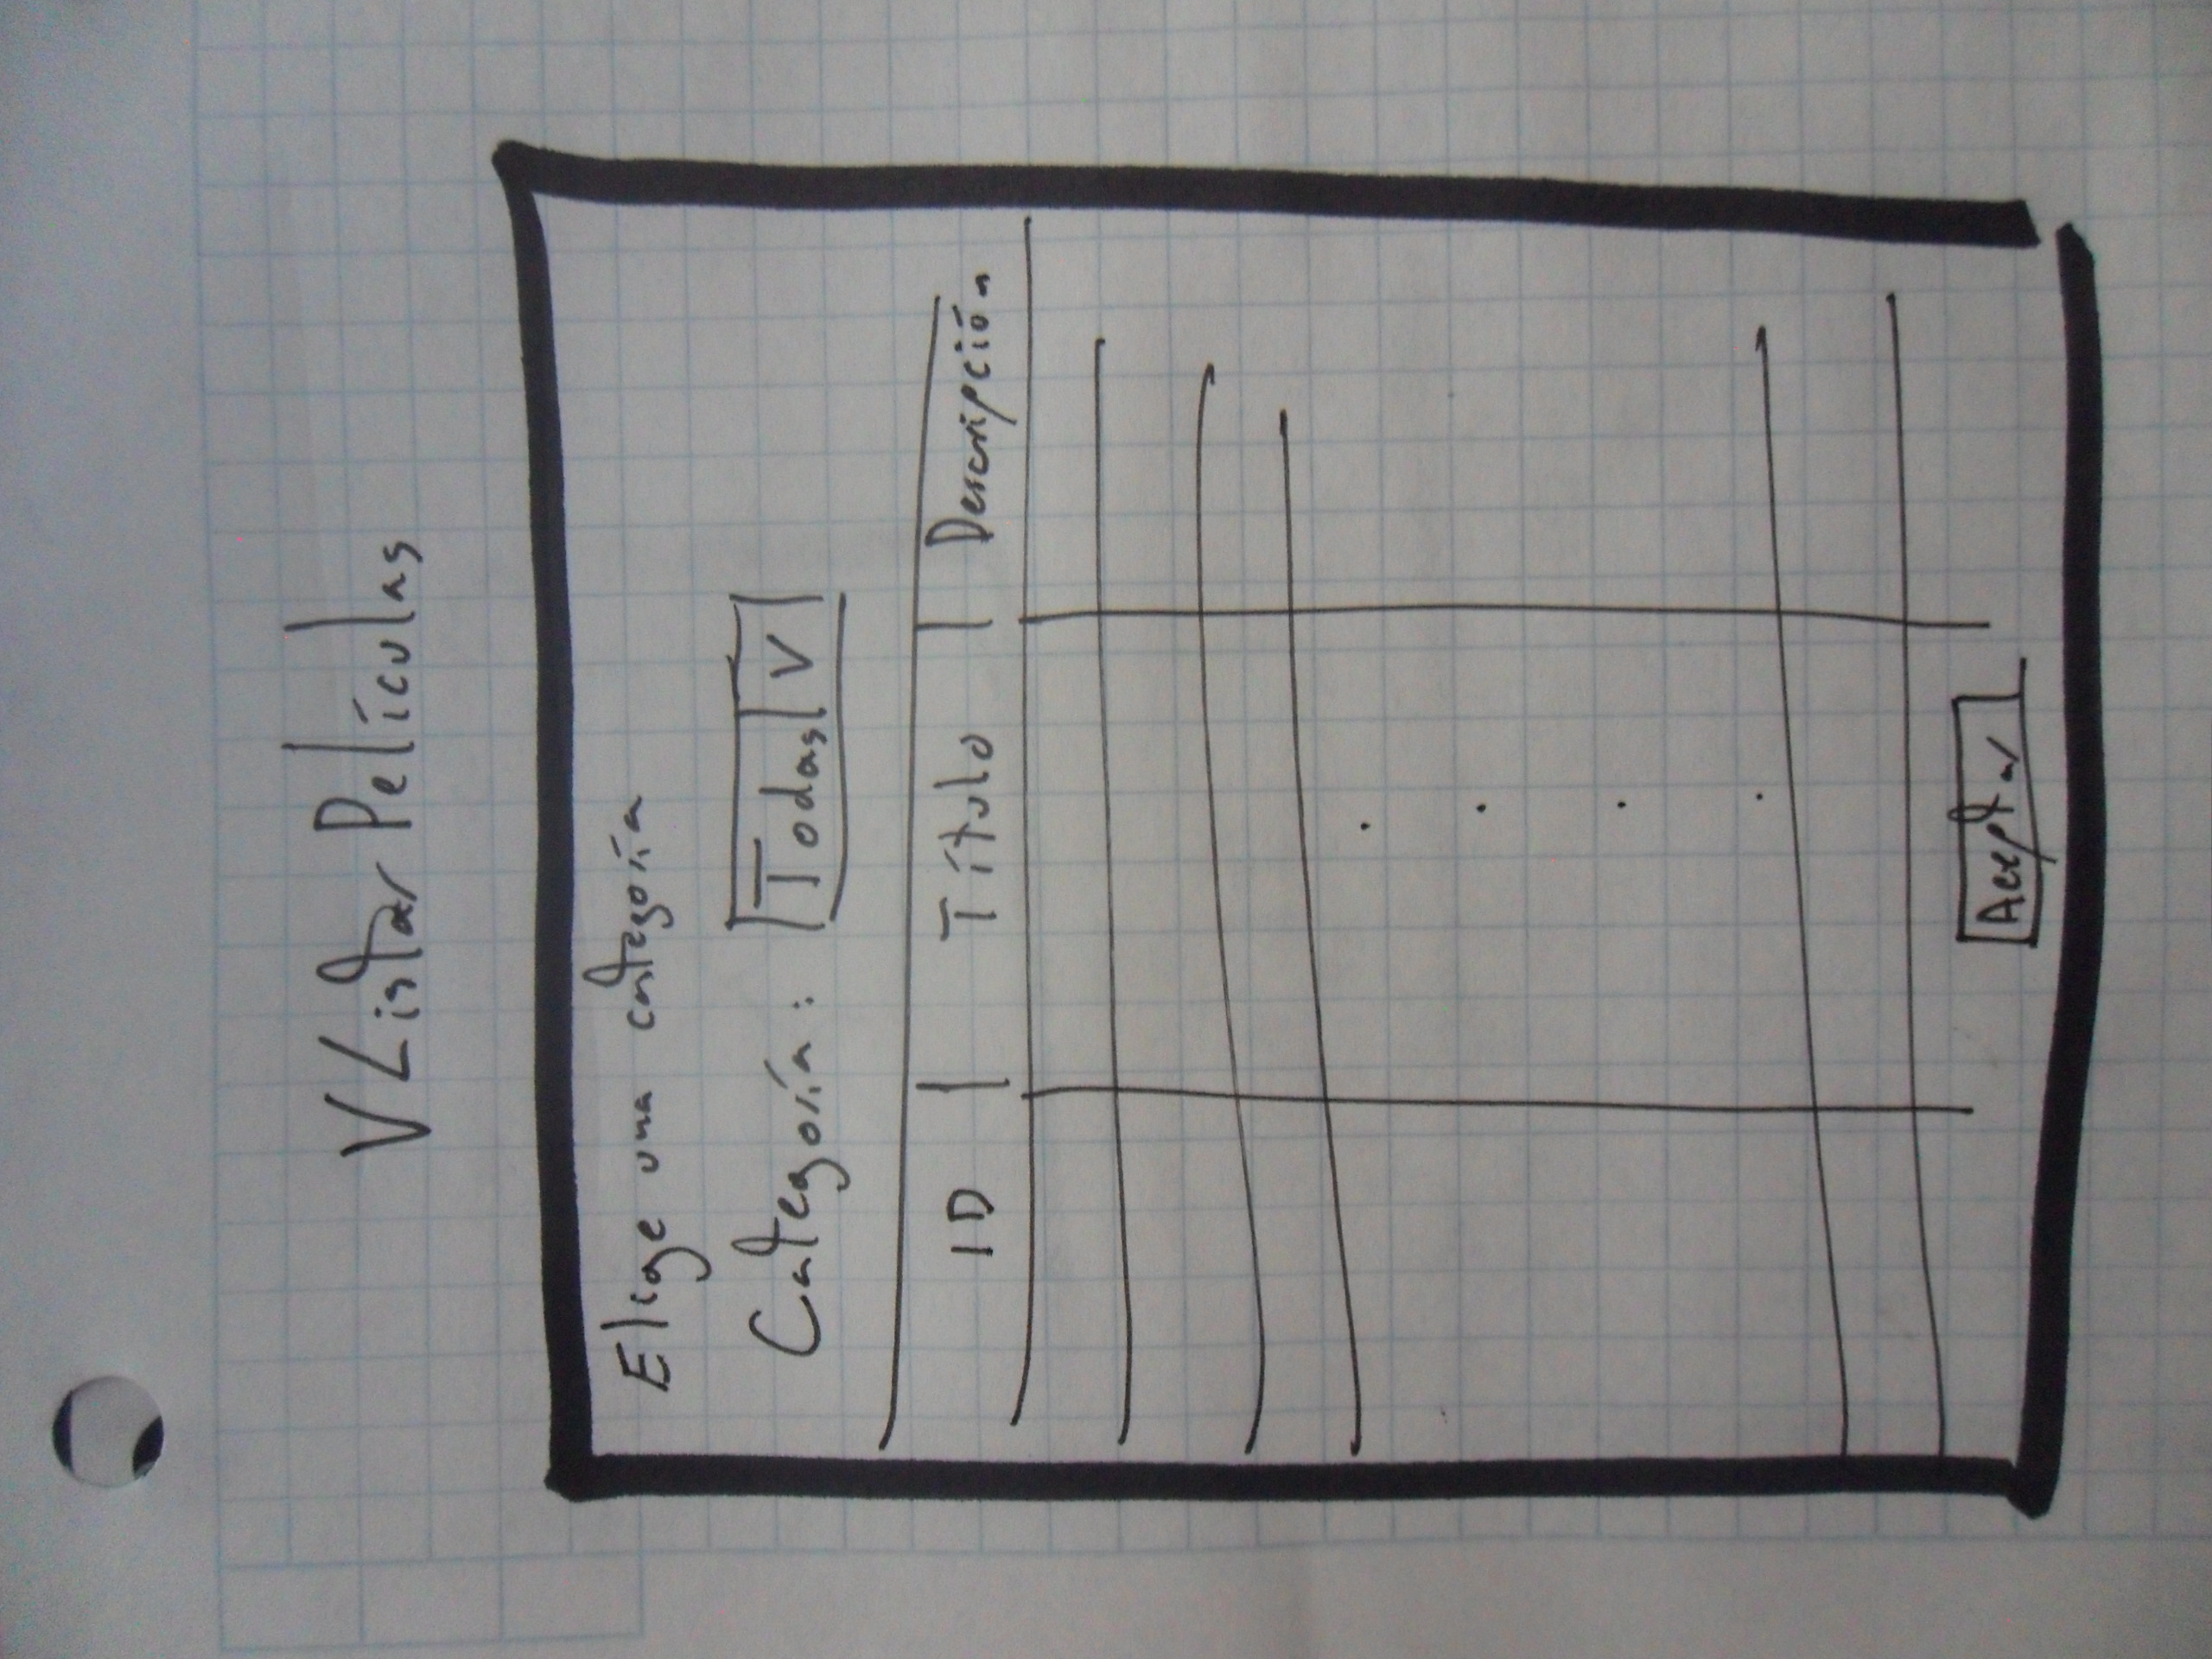 VListar Películas
Elige una categoría
Categoría: Todas V
ID | Título | Descripción
Aceptar